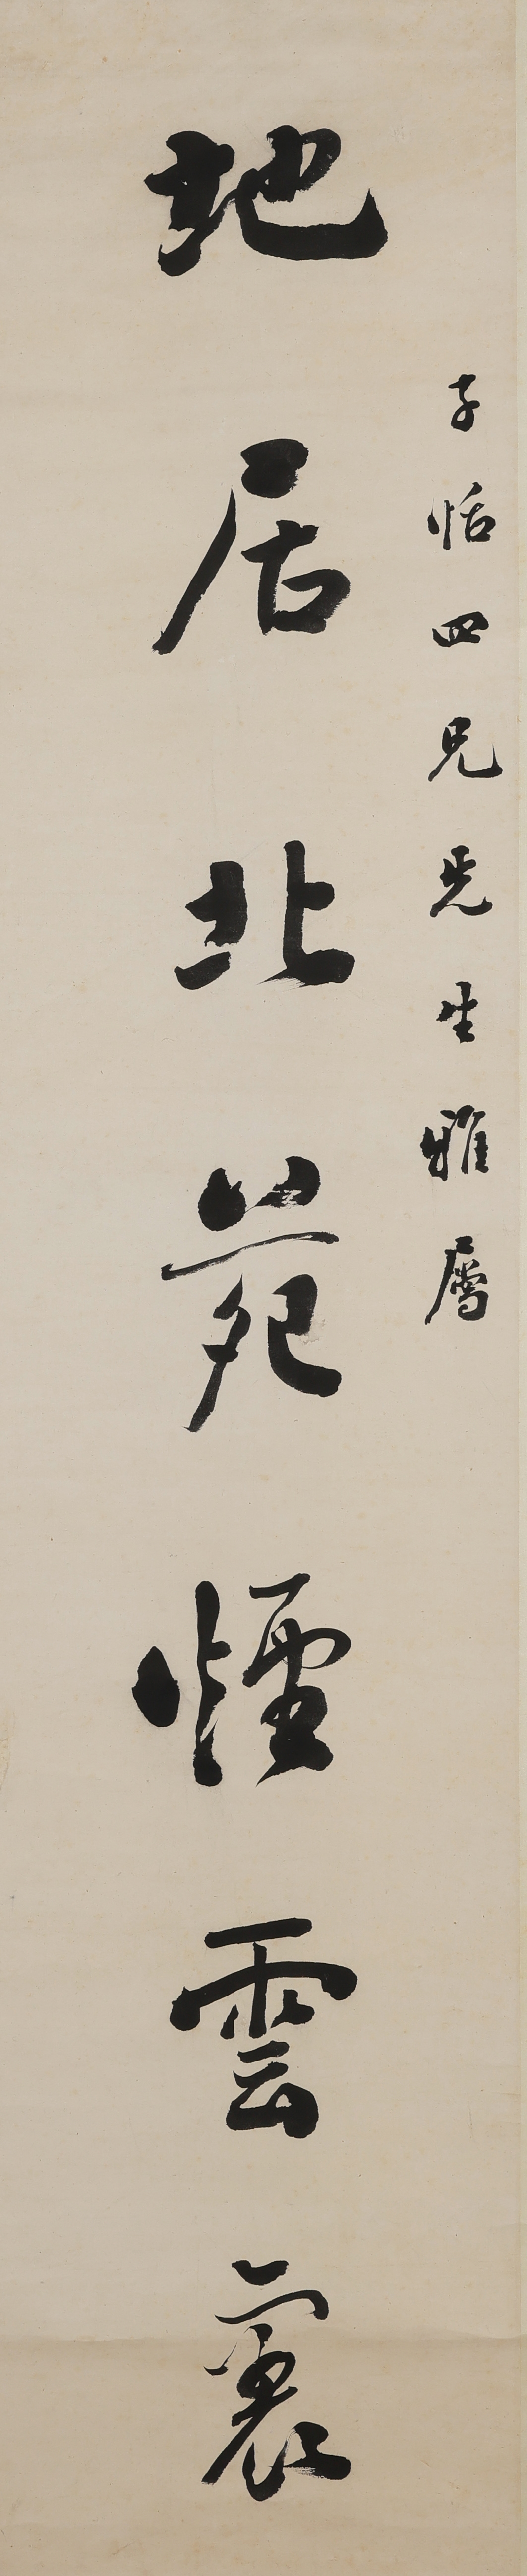 子恬四兄先生雅屬
地居北苑煙雲裏